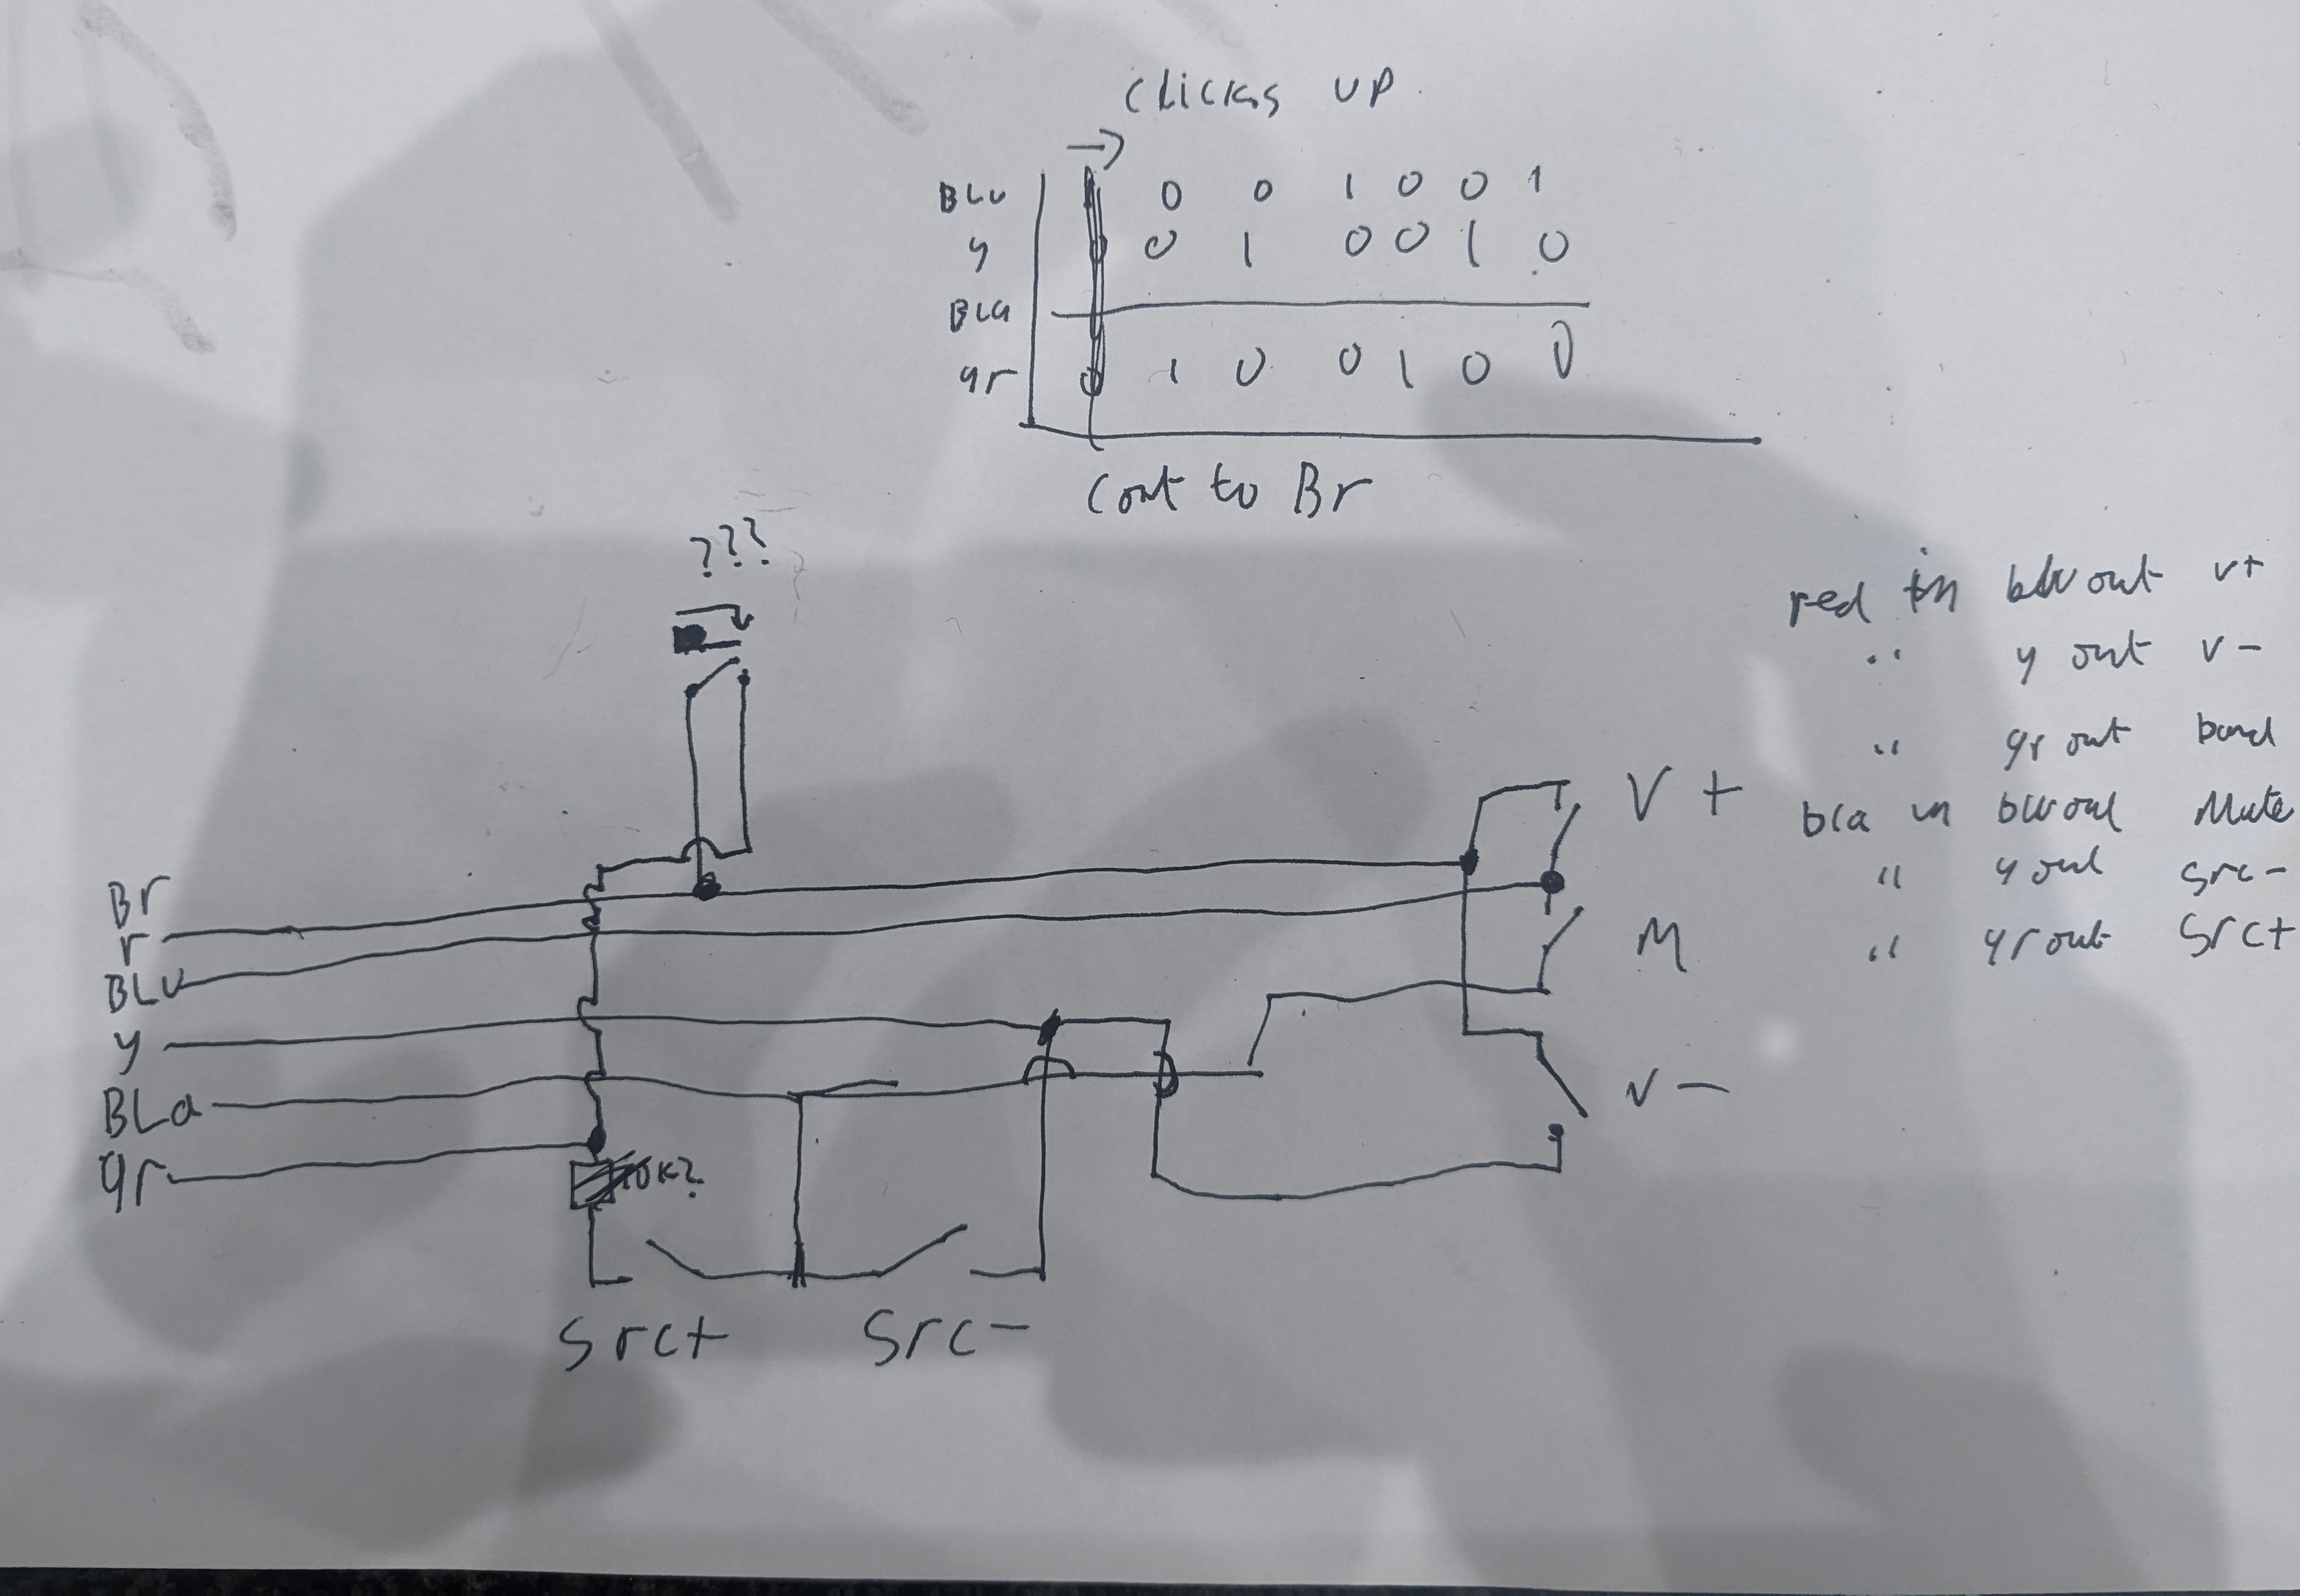 Clicks up
→
BLU 0 0 1 0 0 1
y 0 0 1 0 0 1 0
BLa
gr 0 1 0 0 1 0 0
Cont to Br
???
red in blu out v+
" y out v-
" gr out band
bla in blu out Mute
" y out src-
" gr out Src+
V+
Br
r
BLU
M
y
BLa
V-
gr
10K?
Src+ Src-